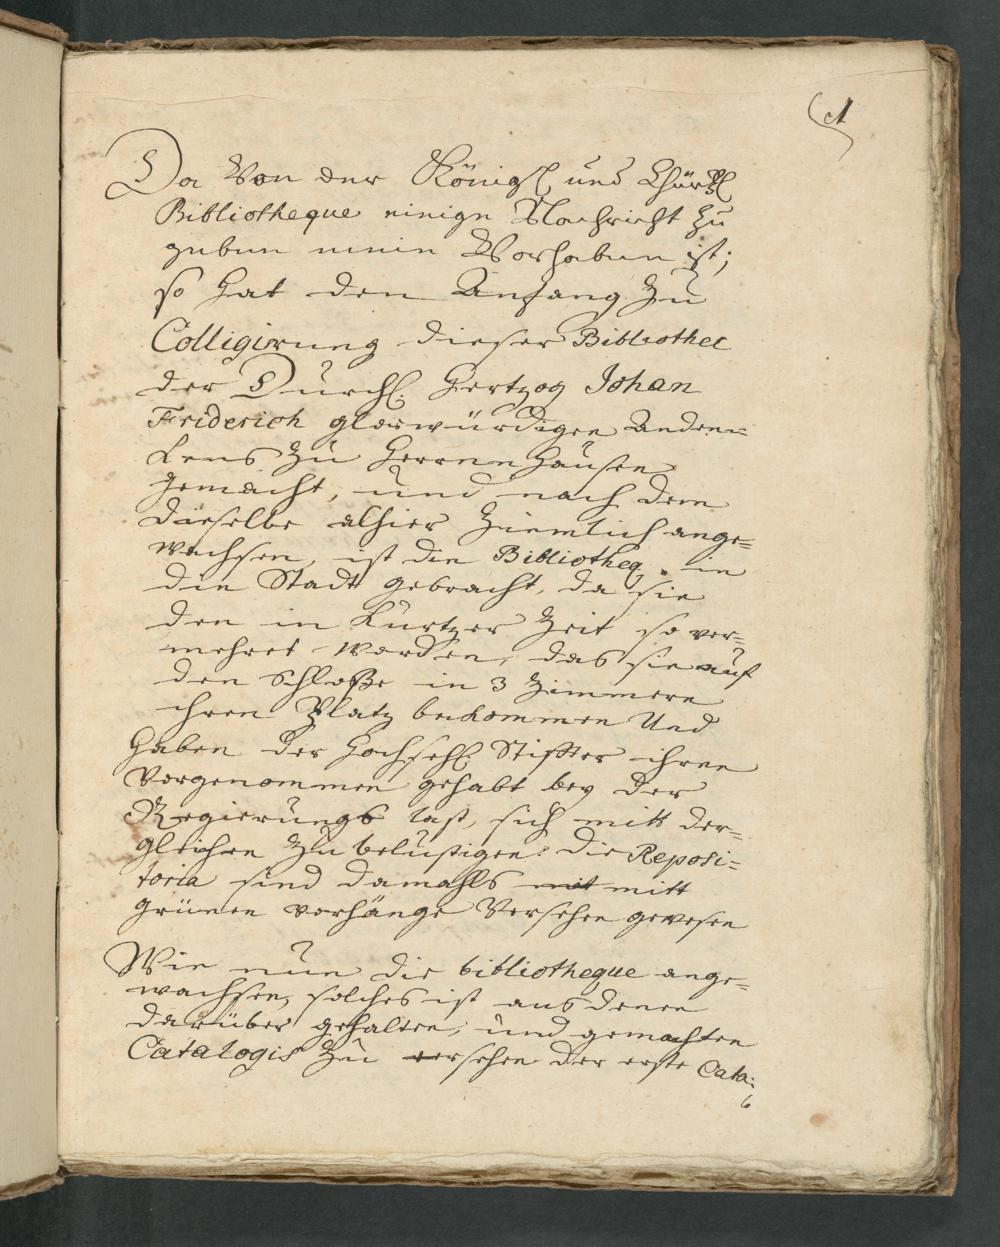 1
Da Von der Königl und Chürfl
Bibliotheque einige Nachricht zu
geben mein Vorhaben ist;
so hat den Anfang zu
Colligirung dieser Bibliothec
der Durchl. Hertzog Johan
Friderich glorwürdigen Anden=
kens zu Herrnnhausen
gemacht, und nach dem
dieselbe alhier Ziemlich ange=
wachsen, ist die Bibliotheq. in
die Stadt gebracht, da sie
den in Kurtzer Zeit so ver=
mehret worden, das sie auf
den Schloße in 3 Zimmern
ihren Platz bekommen Und
haben der Hochsehl. Stiffter ihren
Vorgenommen gehabt bey der
Regierungs last, sich mitt der=
gleichen zu belustigen: die Reposi=
toria sind damahls mitt
grünen vorhänge Versehen gewesen
Wie nun die bibliotheque ange=
wachsen, solches ist aus denen
darüber gehalten, und gemachten
Catalogis zu ersehen der erste Cata: